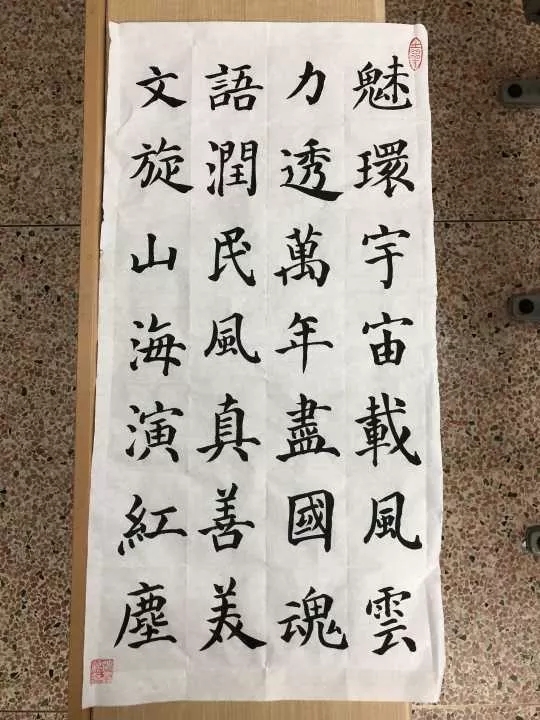 魅環宇宙載風雲
力透萬年盡國魂
語潤民風真善美
文旋山海演紅塵